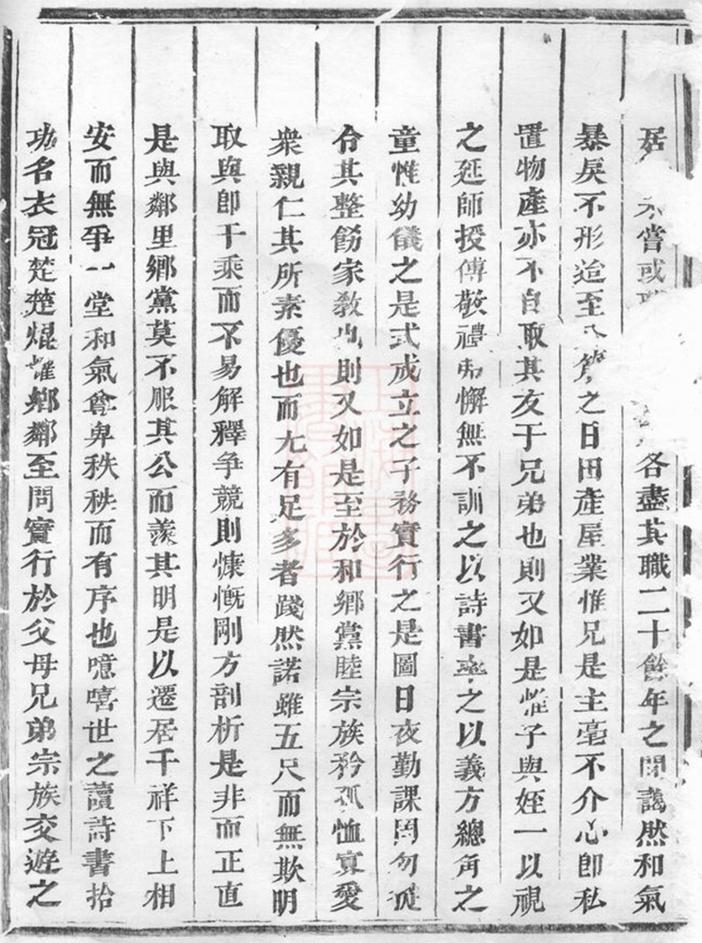 居 嘗或 各盡其職二十餘年之間藹然和氣
暴戾不形迨至 算之日田產屋業惟兄是主毫不介心卽私
置物產亦不自取其友于兄弟也則又如是惟子與姪一以視
之延師授傳敬禮弗懈無不訓之以詩書率之以義方總角之
童惟幼儀之是式成立之子務實行之是圖日夜勤課罔勿從
令其整飭家敎也則又如是至於和鄉黨睦宗族矜孤恤寡愛
衆親仁其所素優也而尤有足多者踐然諾雖五尺而無欺明
取與卽千乘而不易解釋爭競則慷慨剛方剖析是非而正直
是與鄰里鄉黨莫不服其公而羨其明是以遷居千祥下上相
安而無爭一堂和氣尊卑秩秩而有序也噫嘻世之讀詩書拾
功名衣冠楚楚焜燿鄉鄰至問實行於父母兄弟宗族交遊之